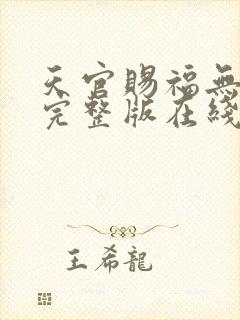 天官賜福無
完整版在綫
王希龍